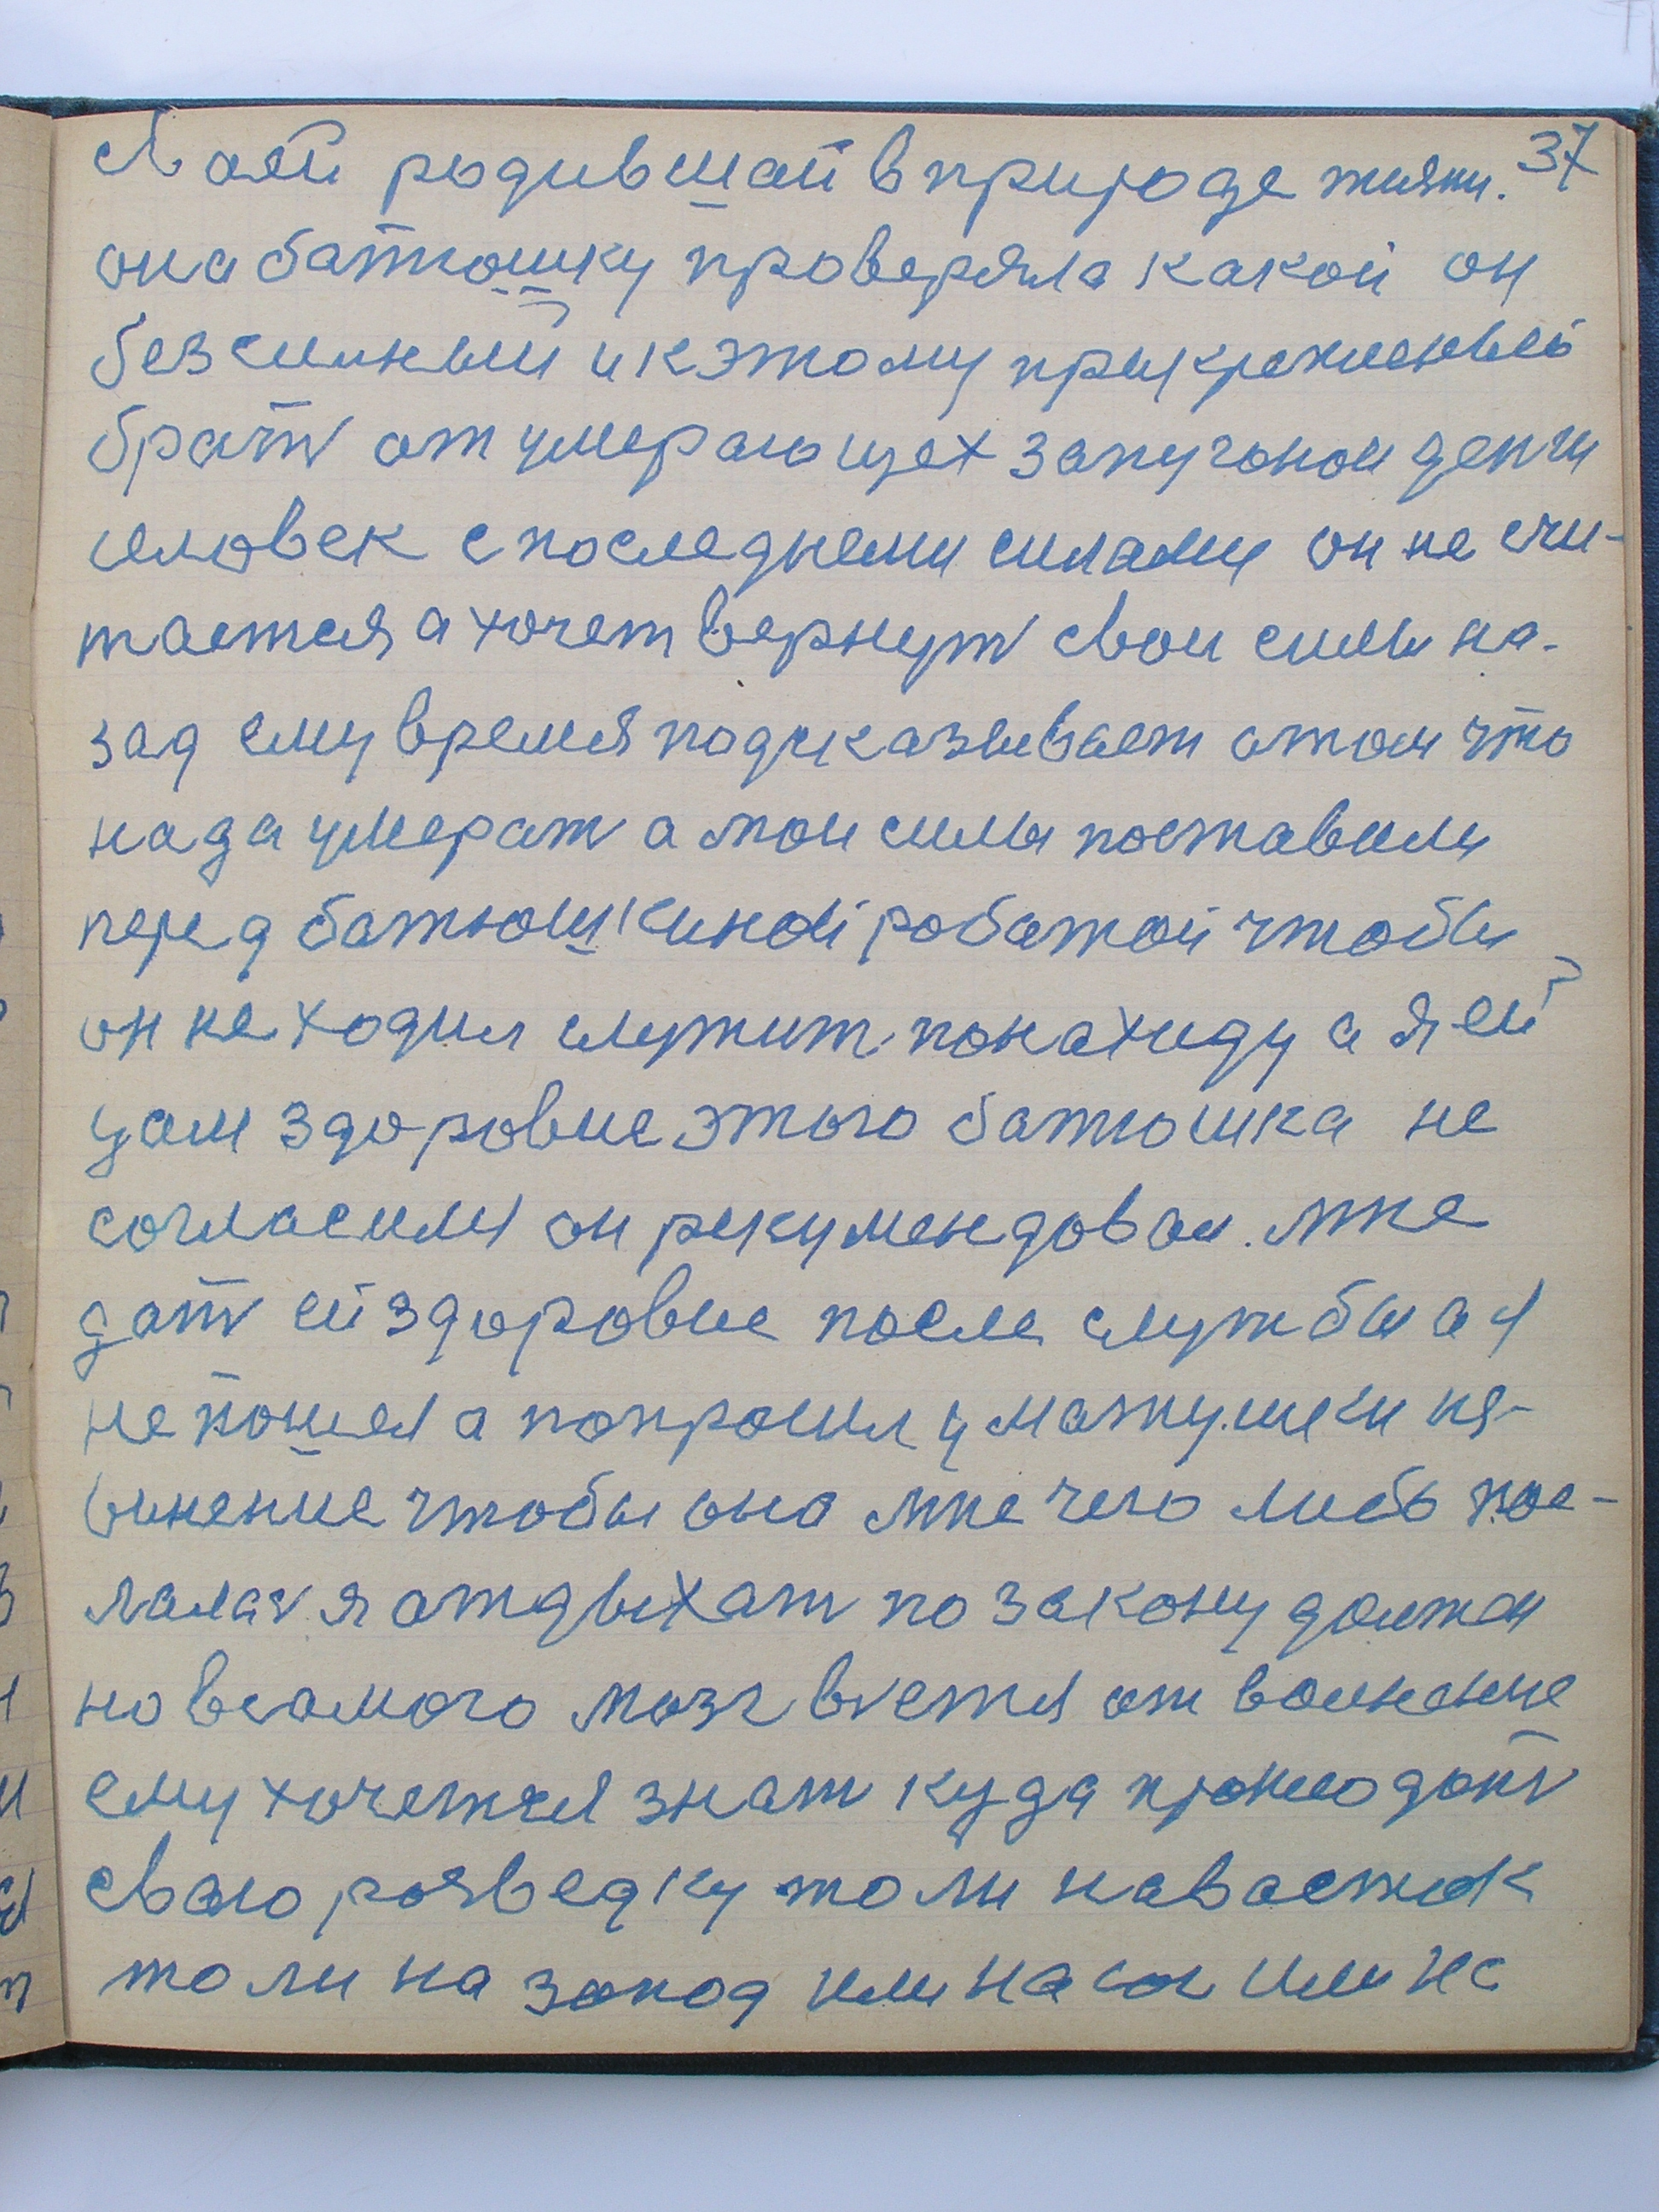 37
родившай в природе жизни.
она батюшку проверяла какой он
безсильный и к этому прикрепленный
брать от умерающех запугоной денги
человек с последнеми силами он не счи-
тается а хочет вернуть свои силы на-
зад ему время подсказывает отом что
нада умерать а мои силы поставили
перед батюшкиной работой чтобы
он не ходил служить понахиду а я ей
дам здоровие этого батюшка не
согласился он рекумендовал. мне
дать ей здоровие после службы а я
не пошел а попросил у матушки из-
винение чтобы она мне чего либо пос-
лала я атдыхать по закону должен
но в самого мозг вьется от волнение
ему хочется знать куда
сваю разведку то ли навасток
то ли на запад или на или на